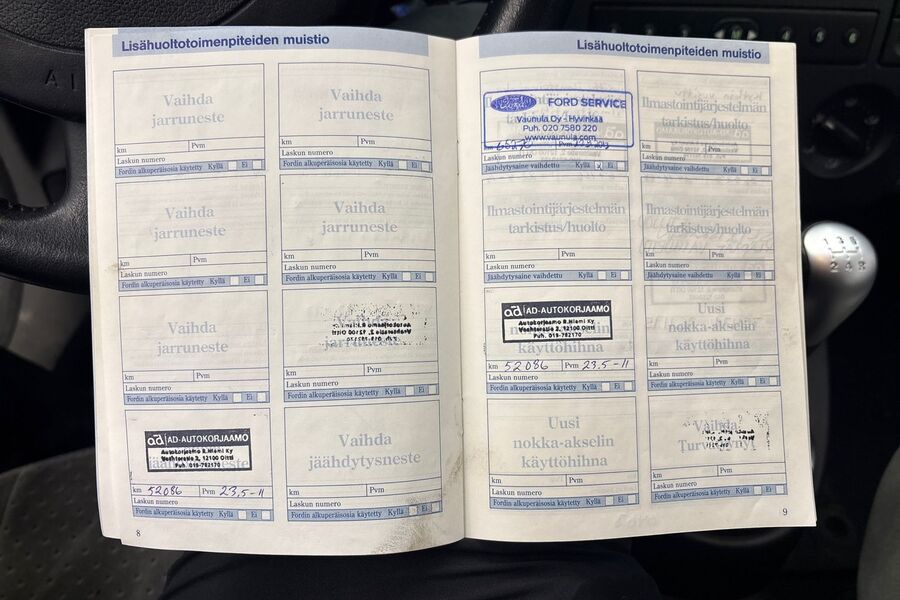 Lisähuoltotoimenpiteiden muistio
Vaihda
jarruneste
km Pvm
Laskun numero
Fordin alkuperäisosia käytetty Kyllä Ei
Vaihda
jarruneste
km Pvm
Laskun numero
Fordin alkuperäisosia käytetty Kyllä Ei
Vaihda
jarruneste
km Pvm
Laskun numero
Fordin alkuperäisosia käytetty Kyllä Ei
Vaihda
jarruneste
km Pvm
Laskun numero
Fordin alkuperäisosia käytetty Kyllä Ei
Vaihda
jarruneste
km Pvm
Laskun numero
Fordin alkuperäisosia käytetty Kyllä Ei
jarruneste
km Pvm
Laskun numero
Fordin alkuperäisosia käytetty Kyllä Ei
ad AD-AUTOKORJAAMO
Autokorjaamo R.Niemi Ky
Vanhtarastie 2, 12100 Oitti
Puh. 019-782170
km 52086 Pvm 23,5-11
Laskun numero
Fordin alkuperäisosia käytetty Kyllä Ei
Vaihda
jäähdytysneste
km Pvm
Laskun numero
Fordin alkuperäisosia käytetty Kyllä Ei
8
Lisähuoltotoimenpiteiden muistio
FORD SERVICE
Vaunula Oy - Hyvinkää
Puh. 020 7580 220
www.vaunula.com
km Pvm
Laskun numero
Jäähdytysaine vaihdettu Kyllä x Ei
Ilmastointijärjestelmän
tarkistus/huolto
km Pvm
Laskun numero
Jäähdytysaine vaihdettu Kyllä Ei
Ilmastointijärjestelmän
tarkistus/huolto
km Pvm
Laskun numero
Jäähdytysaine vaihdettu Kyllä Ei
Ilmastointijärjestelmän
tarkistus/huolto
km Pvm
Laskun numero
Jäähdytysaine vaihdettu Kyllä Ei
ad AD-AUTOKORJAAMO
Autokorjaamo R.Niemi Ky
2, 12100 Oitti
Puh. 019-782170
nokka-akselin
käyttöhihna
km 52086 Pvm 23,5-11
Laskun numero
Fordin alkuperäisosia käytetty Kyllä Ei
Uusi
nokka-akselin
käyttöhihna
km Pvm
Laskun numero
Fordin alkuperäisosia käytetty Kyllä Ei
Uusi
nokka-akselin
käyttöhihna
km Pvm
Laskun numero
Fordin alkuperäisosia käytetty Kyllä Ei
Vaihda
km Pvm
Laskun numero
Fordin alkuperäisosia käytetty Kyllä Ei
9